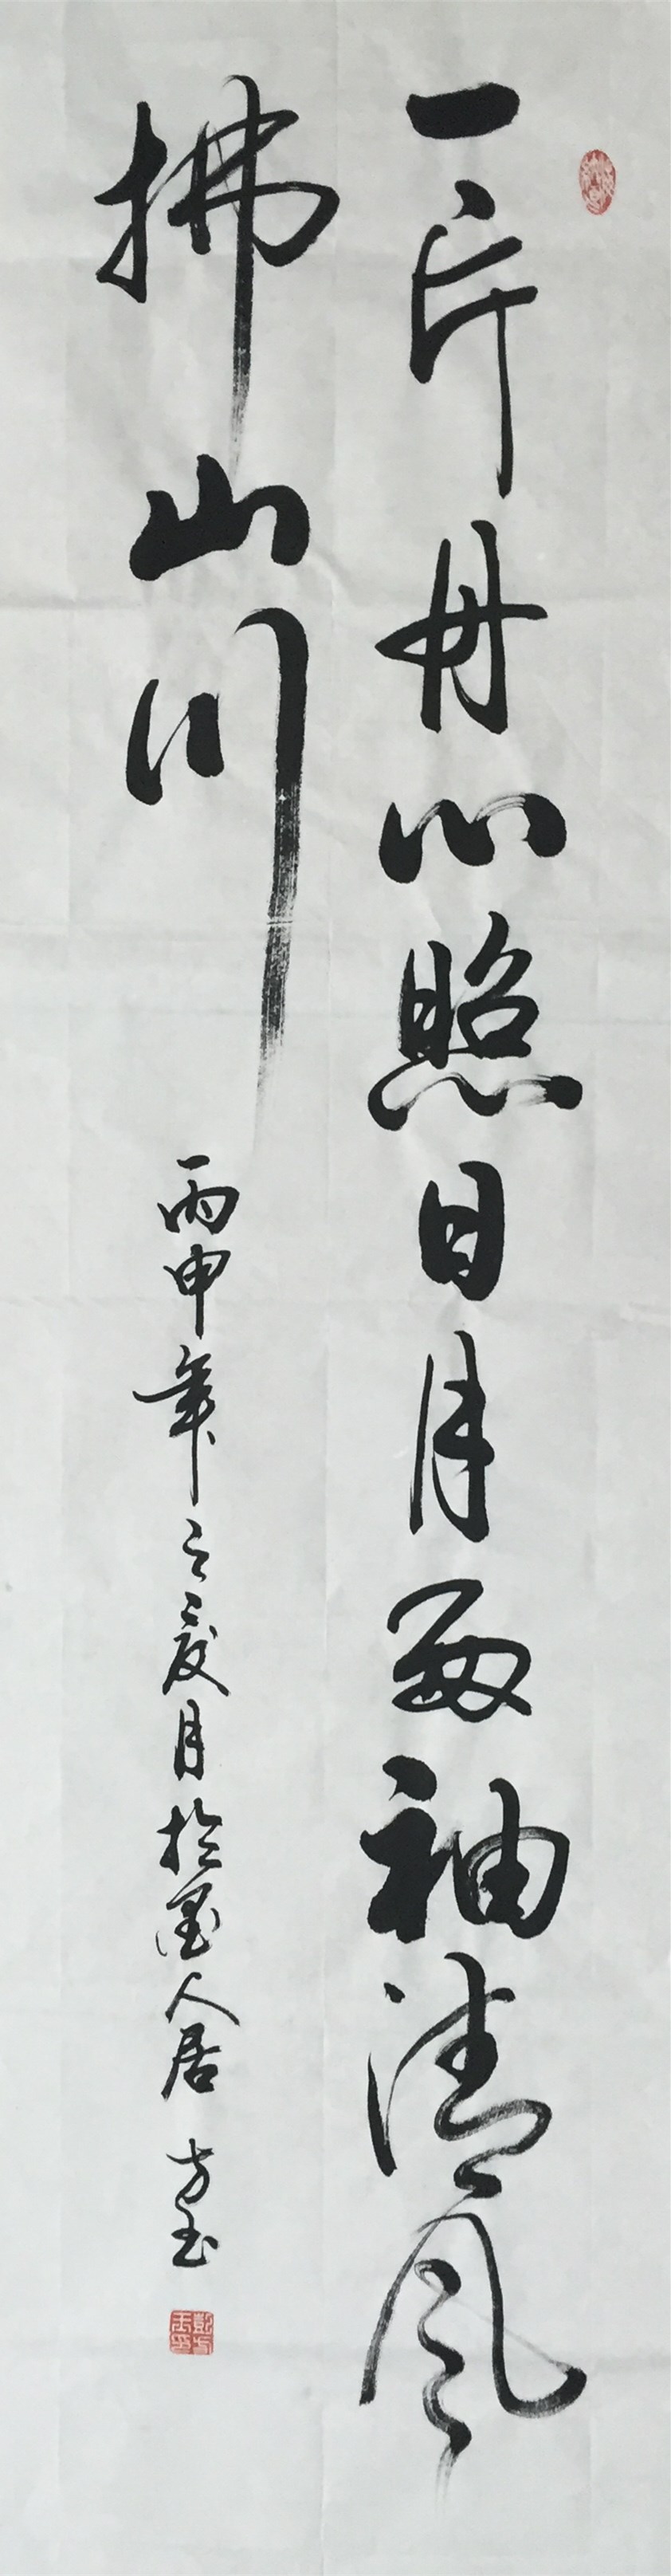 一片丹心照日月两袖清风
拂山川
丙申年之夏月於墨人居 方玉
彭方玉印